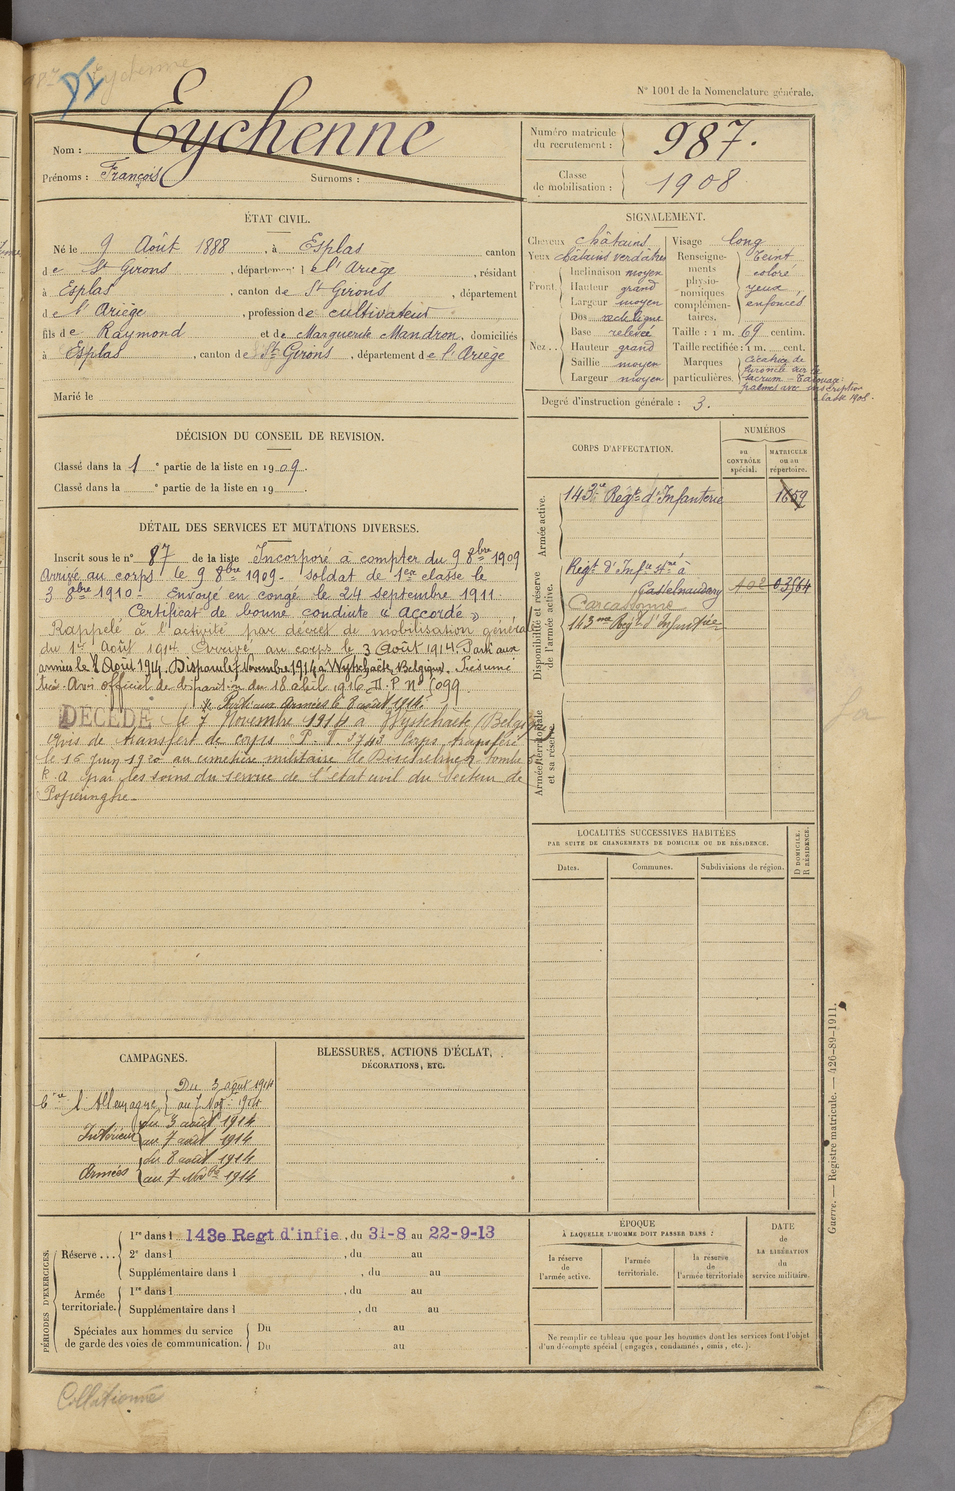 Eychenne
N° 1001 de la Nomenclature générale.
Nom : Eychenne
Prénoms : François Surnoms :
Numéro matricule du recrutement : 987.
Classe de mobilisation : 1908
ÉTAT CIVIL.
Né le 9 Août 1888, à Esplas canton
de St Girons, département de l'Ariège, résidant
à Esplas, canton de St Girons, département
de l'Ariège, profession de cultivateur
fils de Raymond et de Marguerite Mandron, domiciliés
à Esplas, canton de St Girons, département de l'Ariège
Marié le
SIGNALEMENT.
Cheveux châtains
Yeux châtains verdâtres
Front. Inclinaison moyen
Hauteur grand
Largeur moyen
Nez. Dos rectiligne
Base relevée
Hauteur grand
Saillie moyen
Largeur moyen
Visage long
Renseignements physionomiques complémentaires. Teint coloré yeux enfoncés
Taille : 1 m. 69 centim.
Taille rectifiée : 1 m. cent.
Marques particulières. Cicatrice de furoncle sur le sacrum - Tatouage: palmes avec inscription classe 1908.
Degré d'instruction générale : 3.
DÉCISION DU CONSEIL DE REVISION.
Classé dans la 1e partie de la liste en 1909.
Classé dans la e partie de la liste en 19
DÉTAIL DES SERVICES ET MUTATIONS DIVERSES.
Inscrit sous le n° 87 de la liste Incorporé à compter du 9 8bre 1909
Arrivé au corps le 9 8bre 1909 - soldat de 1ère classe le
3 8bre 1910 - Envoyé en congé le 24 septembre 1911.
Certificat de bonne conduite « accordé »
Rappelé à l'activité par décret de mobilisation générale
du 1er Août 1914. Arrivé au corps le 3 Août 1914. Parti aux
armées le 8 Août 1914. Disparu le 7 Novembre 1914 à Wytschaete, Belgique. Présumé
tué. Avis officiel de disparition du 18 avril 1916 D.P. N° 1099
Parti aux Armées le 8 août 1914.
DÉCÉDÉ le 7 Novembre 1914 à Wystchaete (Belgique)
Avis de transfert de corps P.V. 3743 Corps transféré
le 16 juin 1920 au cimetière militaire de tombe
par les soins du service de l'état civil du Secteur de
Poperinghe.
CORPS D'AFFECTATION.
NUMÉROS
au CONTRÔLE spécial.
MATRICULE ou au répertoire.
Armée active.
143e Régt d'Infanterie 1659
Disponibilité et réserve de l'armée active.
Régt d'Infie Snné à
Castelnaudary 03564
Carcassonne
143me Régt d'Infanterie
Armée territoriale et sa réserve
LOCALITÉS SUCCESSIVES HABITÉES
PAR SUITE DE CHANGEMENTS DE DOMICILE OU DE RÉSIDENCE.
Dates. Communes. Subdivisions de région. D DOMICILE. R RÉSIDENCE.
CAMPAGNES.
Cre l'Allemagne Du 3 août 1914
au 7 Nov. 1914
Intérieur du 3 août 1914
au 7 août 1914
Armées du 8 août 1914
au 7 Nov 1914
BLESSURES, ACTIONS D'ÉCLAT,
DÉCORATIONS, ETC.
PÉRIODES D'EXERCICES.
Réserve... 1re dans l 143e Regt d'infie, du 31-8 au 22-9-13
2e dans l , du au
Supplémentaire dans l , du au
Armée territoriale. 1re dans l , du au
Supplémentaire dans l , du au
Spéciales aux hommes du service de garde des voies de communication. Du au
Du au
ÉPOQUE
À LAQUELLE L'HOMME DOIT PASSER DANS :
la réserve de l'armée active.
l'armée territoriale.
la réserve de l'armée territoriale
DATE de LA LIBÉRATION du service militaire.
Ne remplir ce tableau que pour les hommes dont les services font l'objet
d'un décompte spécial (engagés, condamnés, omis, etc.).
Guerre. — Registre matricule. — 426-89-1911.
Collationné